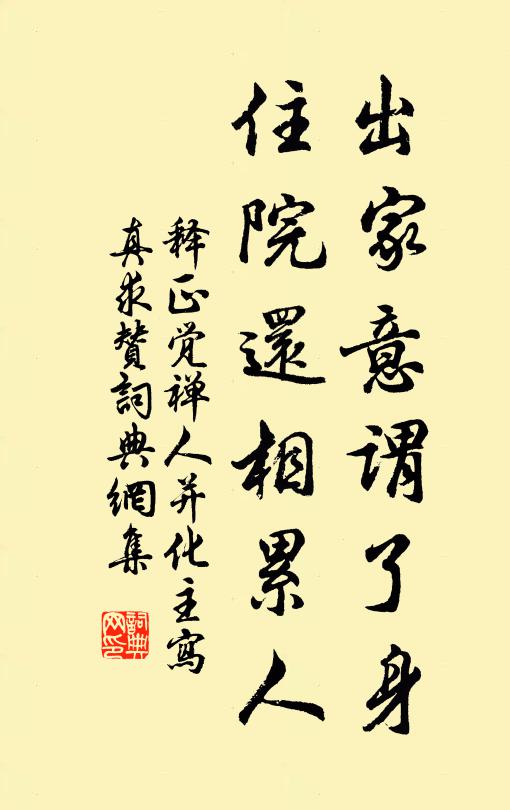 出家意謂了身
住院還相累人
释正觉禅人并化主寫
真求贊詞典網集
詞典网印